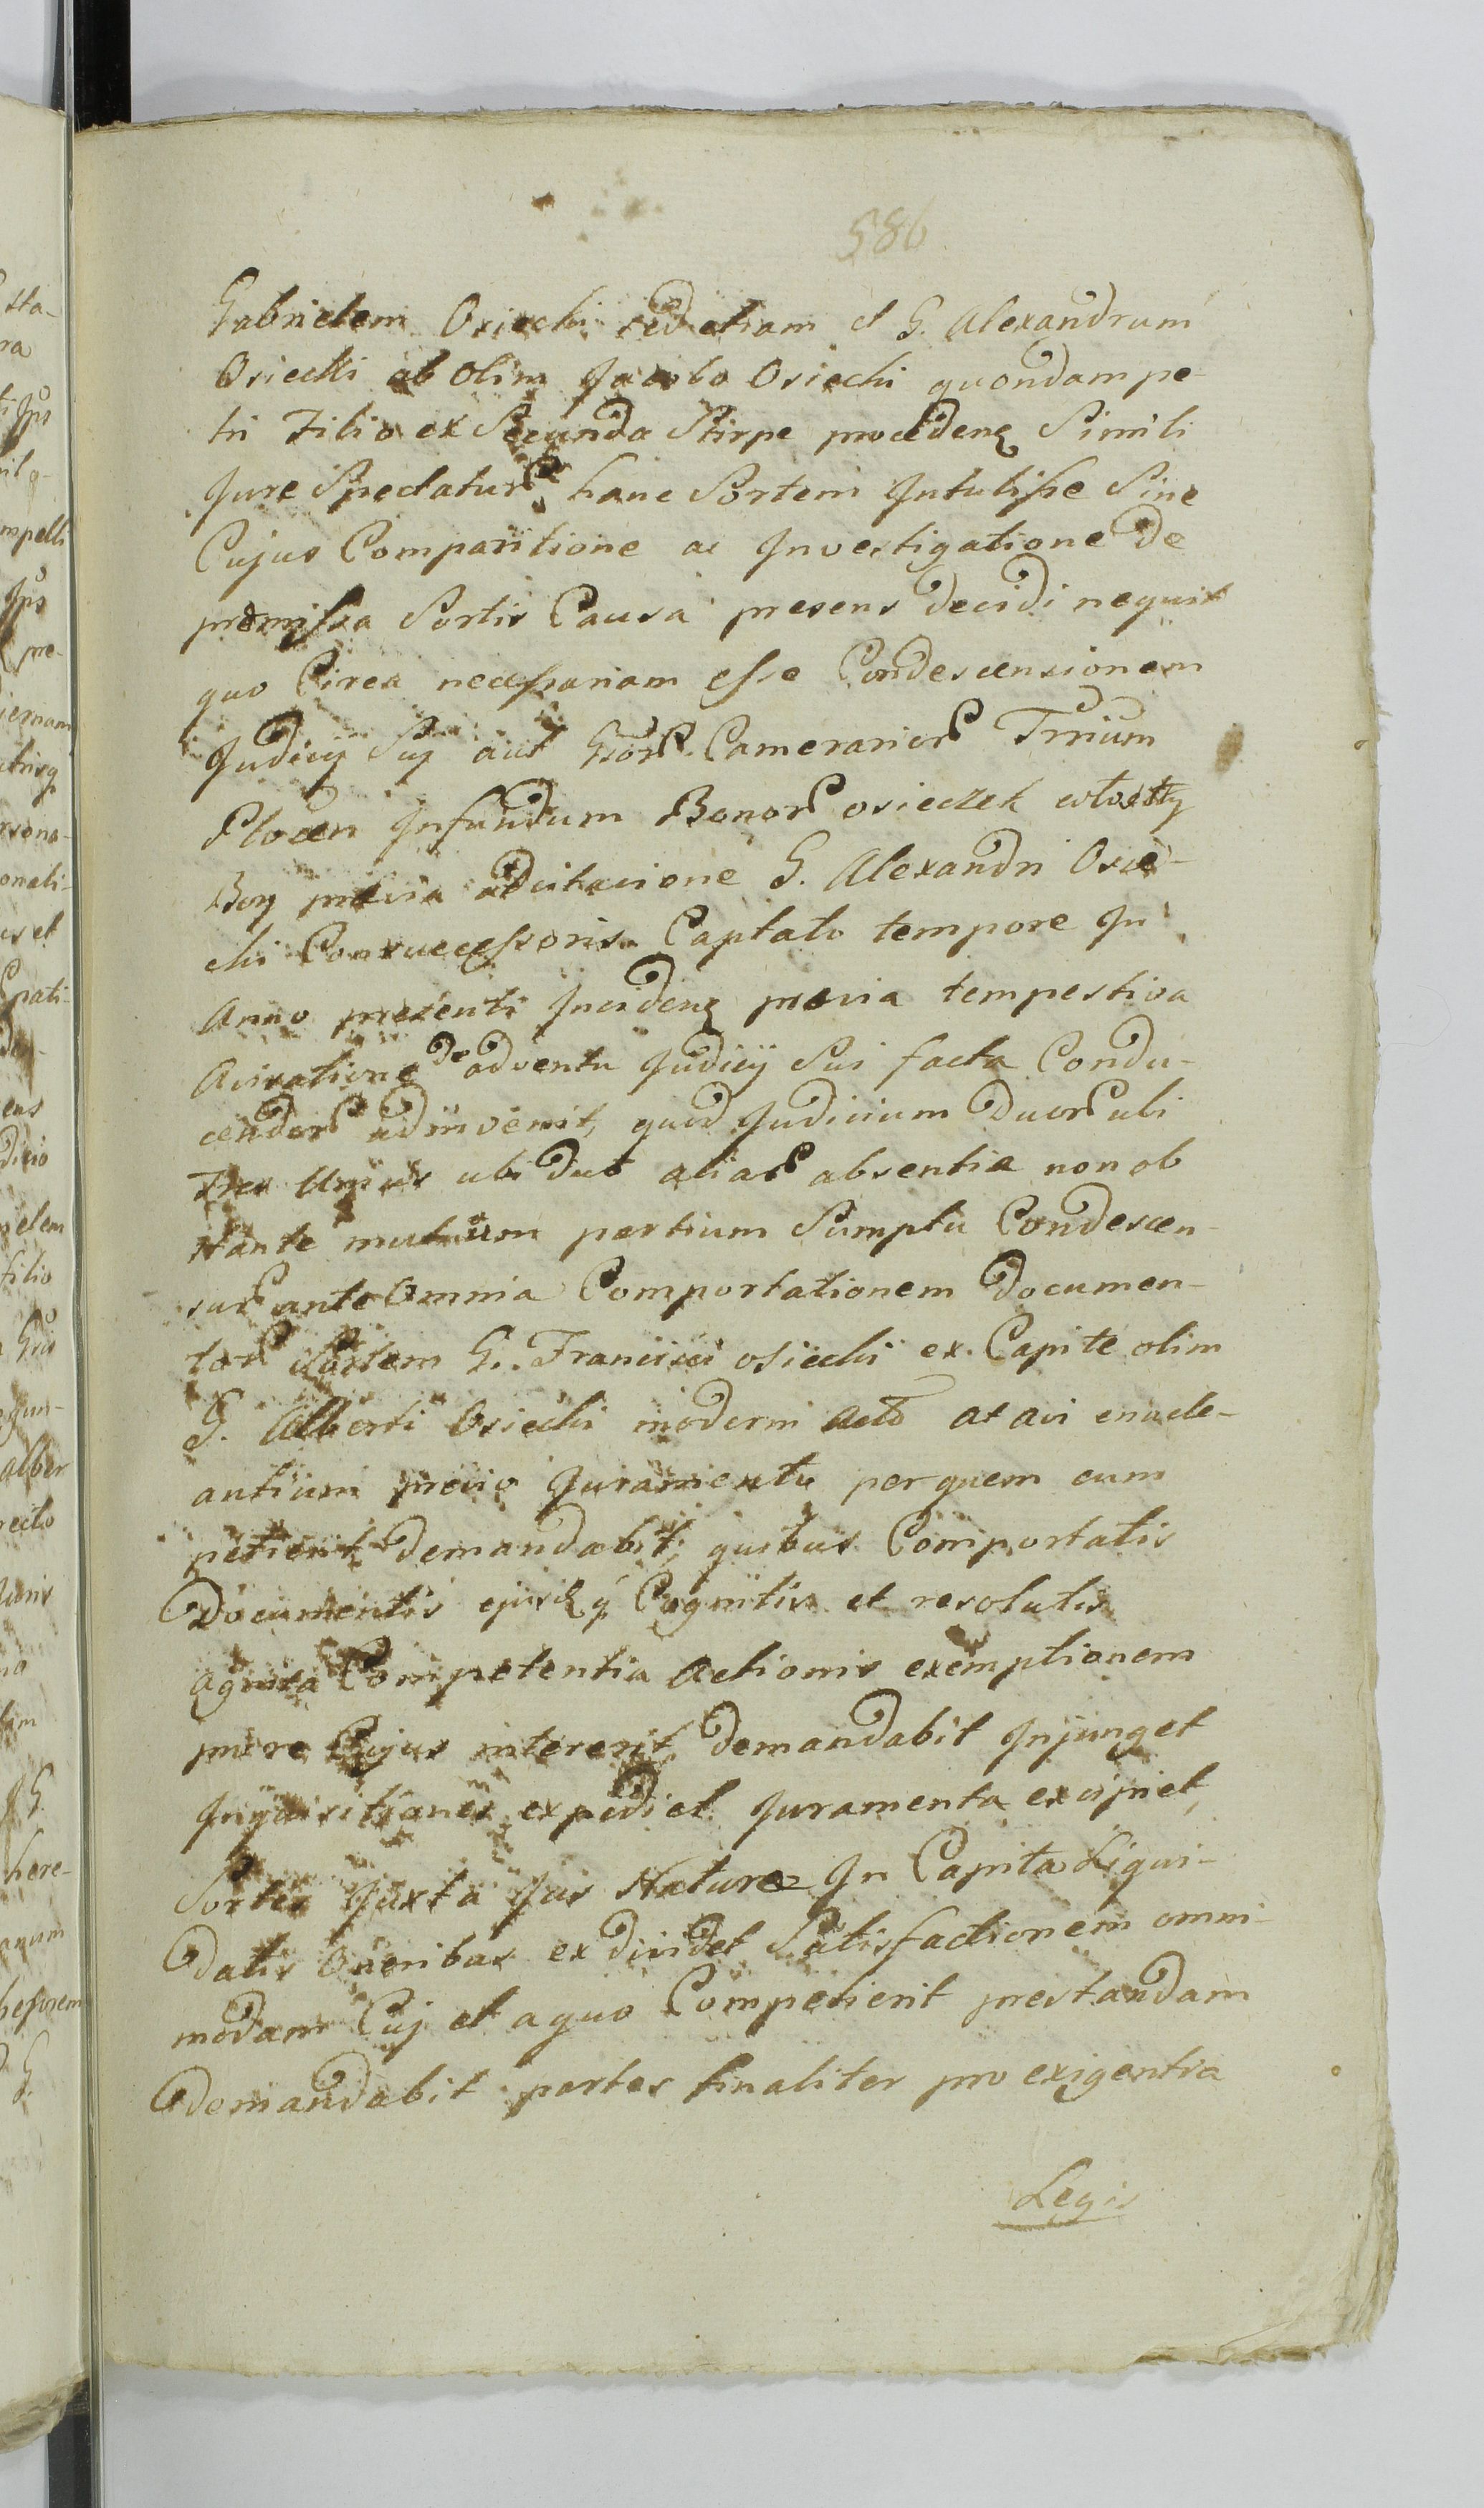 586
Gabrielem Osiecki sed etiam et G. Alexandrum
Osiecki ab olim Jacobo Osiecki quondam pe-
tri Filio ex Secunda Stirpe proceden Simili
Jure Spectatur hanc Sortem Intulisse Sine
Cujus Comparitione ac Investigatione de
premissa Sortis Causa presens decidi nequit
quo Circa necessariam esse Condescensionem
Judicij Suy aut Camerarior Trrium
Plocen Infundum Bonor osieczek
previa adcitacione G. Alexandri Osie-
cki Consuccessoris Captato tempore In
Anno presenti Inciden previa tempestiva
Avisatione de adventu Judicij Sui facta Condu-
cendor adinvenit, quod Judicium Duor ubi
Tres Unius ubi duo aliar absentia non ob
stante mutuum partium Sumptu Condescen-
sur ante Omnia Comportationem Documen-
tor Sortem G. Francisci osiecki ex Capite olim
G. Alberti Osiecki moderni atavi enucle-
antium previo Juramento per quem cum
petierit demandabit, quibus Comportatis
Documentis Cognitis et resolutis
agnita Competentia Actionis exemptionem
Cujus intererit demandabit Injunget
Inquisitiones expediet Juramenta excipiet,
Sortes Juxta Jus Nature In Capita Liqui-
datis Oneribus exdividet Satisfactionem omni-
modam Cuj et aquo Competierit prestandam
Demandabit partes finaliter pro exigentia
Legis